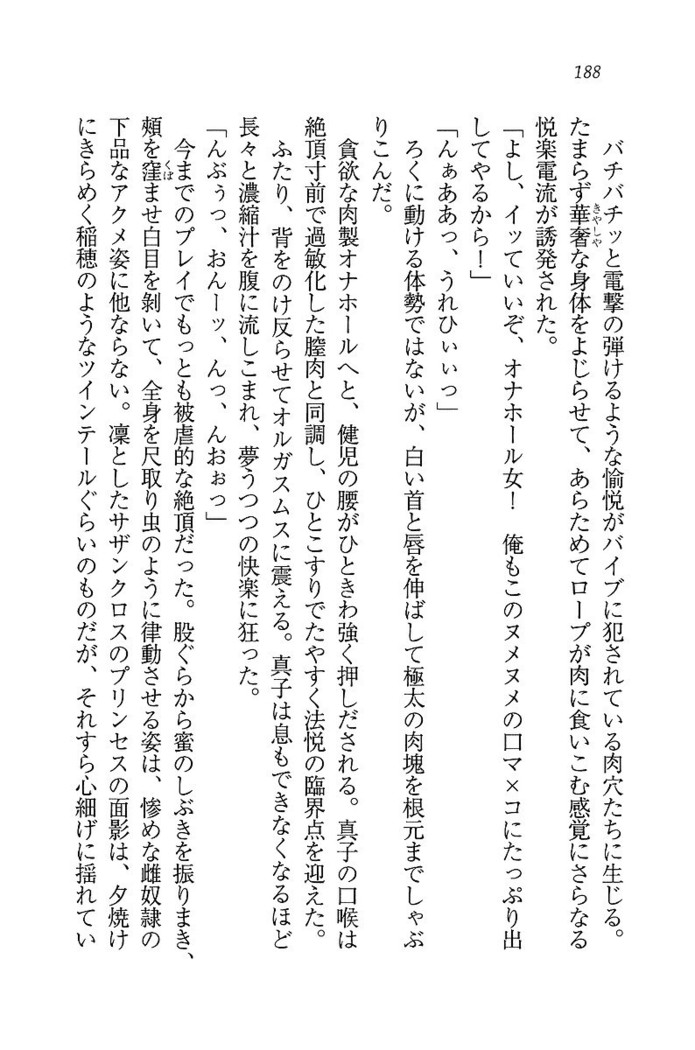 188
バチバチッと電撃の弾けるような愉悦がバイブに犯されている肉穴たちに生じる。
たまらず華奢な身体をよじらせて、あらためてロープが肉に食いこむ感覚にさらなる
悦楽電流が誘発された。
「よし、イッていいぞ、オナホール女！　俺もこのヌメヌメの口マ×コにたっぷり出
してやるから！」
「んぁああっ、うれひぃぃっ」
ろくに動ける体勢ではないが、白い首と唇を伸ばして極太の肉塊を根元までしゃぶ
りこんだ。
貪欲な肉製オナホールへと、健児の腰がひときわ強く押しだされる。真子の口喉は
絶頂寸前で過敏化した膣肉と同調し、ひとこすりでたやすく法悦の臨界点を迎えた。
ふたり、背をのけ反らせてオルガスムスに震える。真子は息もできなくなるほど
長々と濃縮汁を腹に流しこまれ、夢うつつの快楽に狂った。
「んぶぅっ、おんーッ、んっ、んおぉっ」
今までのプレイでもっとも被虐的な絶頂だった。股ぐらから蜜のしぶきを振りまき、
頰を窪ませ白目を剝いて、全身を尺取り虫のように律動させる姿は、惨めな雌奴隷の
下品なアクメ姿に他ならない。凜としたサザンクロスのプリンセスの面影は、夕焼け
にきらめく稲穂のようなツインテールぐらいのものだが、それすら心細げに揺れてい